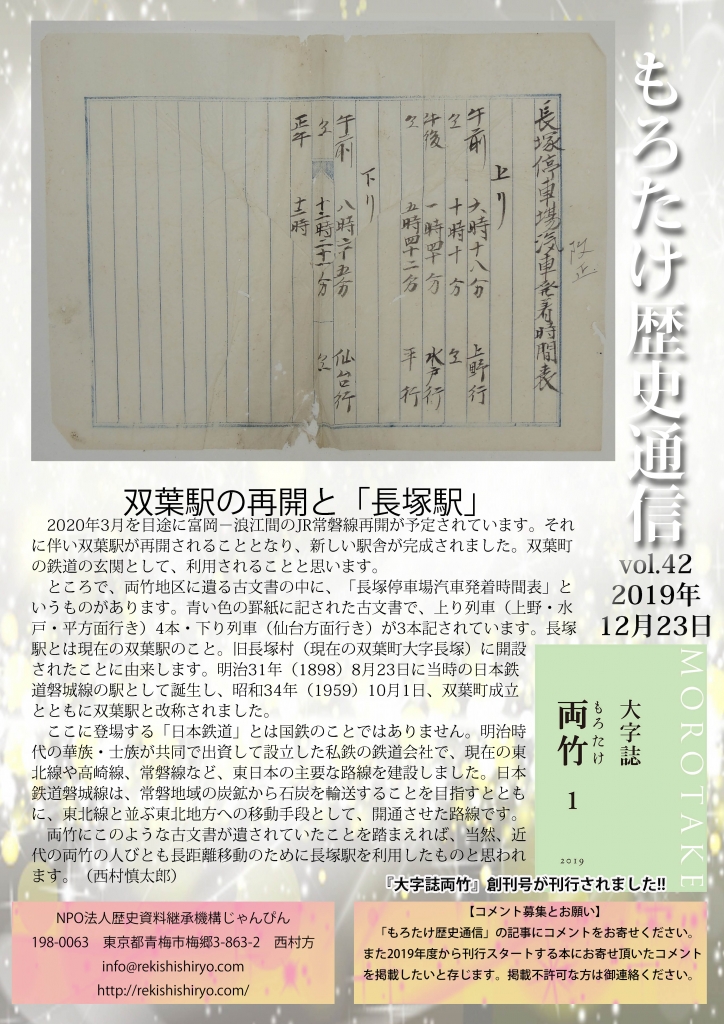 もろたけ歴史通信
vol.42
2019年
12月23日
長塚停車場汽車発着時間表
附近
上り
午前 六時十八分 上野行
仝 十時十分 仝
午後 一時四十分 水戸行
仝 五時四十二分 平行
下り
午前 八時六十五分 仙台行
仝 十一時二十一分 仝
正午 十二時
双葉駅の再開と「長塚駅」
2020年3月を目途に富岡－浪江間のJR常磐線再開が予定されています。それ
に伴い双葉駅が再開されることとなり、新しい駅舎が完成されました。双葉町
の鉄道の玄関として、利用されることと思います。
ところで、両竹地区に遺る古文書の中に、「長塚停車場汽車発着時間表」と
いうものがあります。青い色の罫紙に記された古文書で、上り列車（上野・水
戸・平方面行き）4本・下り列車（仙台方面行き）が3本記されています。長塚
駅とは現在の双葉駅のこと。旧長塚村（現在の双葉町大字長塚）に開設
されたことに由来します。明治31年（1898）8月23日に当時の日本鉄
道磐城線の駅として誕生し、昭和34年（1959）10月1日、双葉町成立
とともに双葉駅と改称されました。
ここに登場する「日本鉄道」とは国鉄のことではありません。明治時
代の華族・士族が共同で出資して設立した私鉄の鉄道会社で、現在の東
北線や高崎線、常磐線など、東日本の主要な路線を建設しました。日本
鉄道磐城線は、常磐地域の炭鉱から石炭を輸送することを目指すととも
に、東北線と並ぶ東北地方への移動手段として、開通させた路線です。
両竹にこのような古文書が遺されていたことを踏まえれば、当然、近
代の両竹の人びとも長距離移動のために長塚駅を利用したものと思われ
ます。（西村慎太郎）
大字誌
もろたけ
両竹
1
2019
MOROTAKE
『大字誌両竹』創刊号が刊行されました!!
NPO法人歴史資料継承機構じゃんぴん
198-0063　東京都青梅市梅郷3-863-2　西村方
info@rekishishiryo.com
http://rekishishiryo.com/
【コメント募集とお願い】
「もろたけ歴史通信」の記事にコメントをお寄せください。
また2019年度から刊行スタートする本にお寄せ頂いたコメント
を掲載したいと存じます。掲載不許可な方は御連絡ください。